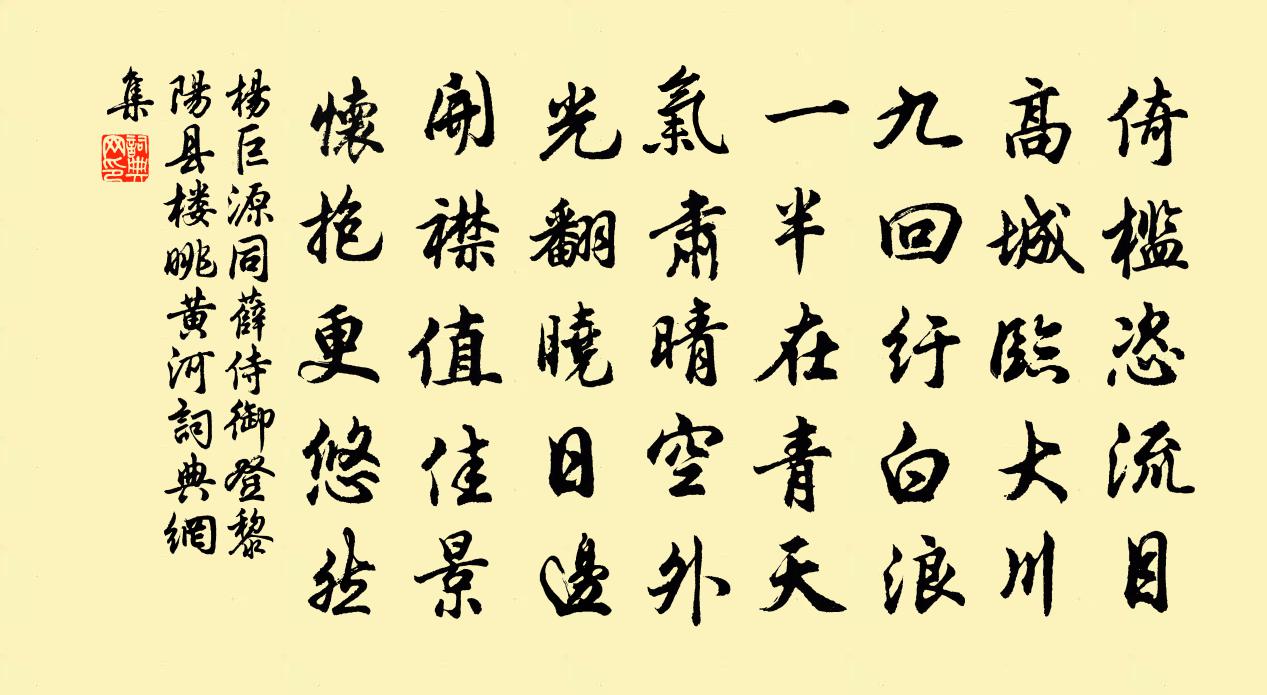 倚檻恣流目
高城臨大川
九回紆白浪
一半在青天
氣肅晴空外
光翻曉日邊
開襟值佳景
懷抱更悠然
楊巨源同薛侍御登黎
陽县楼眺黄河詞典網
集
詞典網印